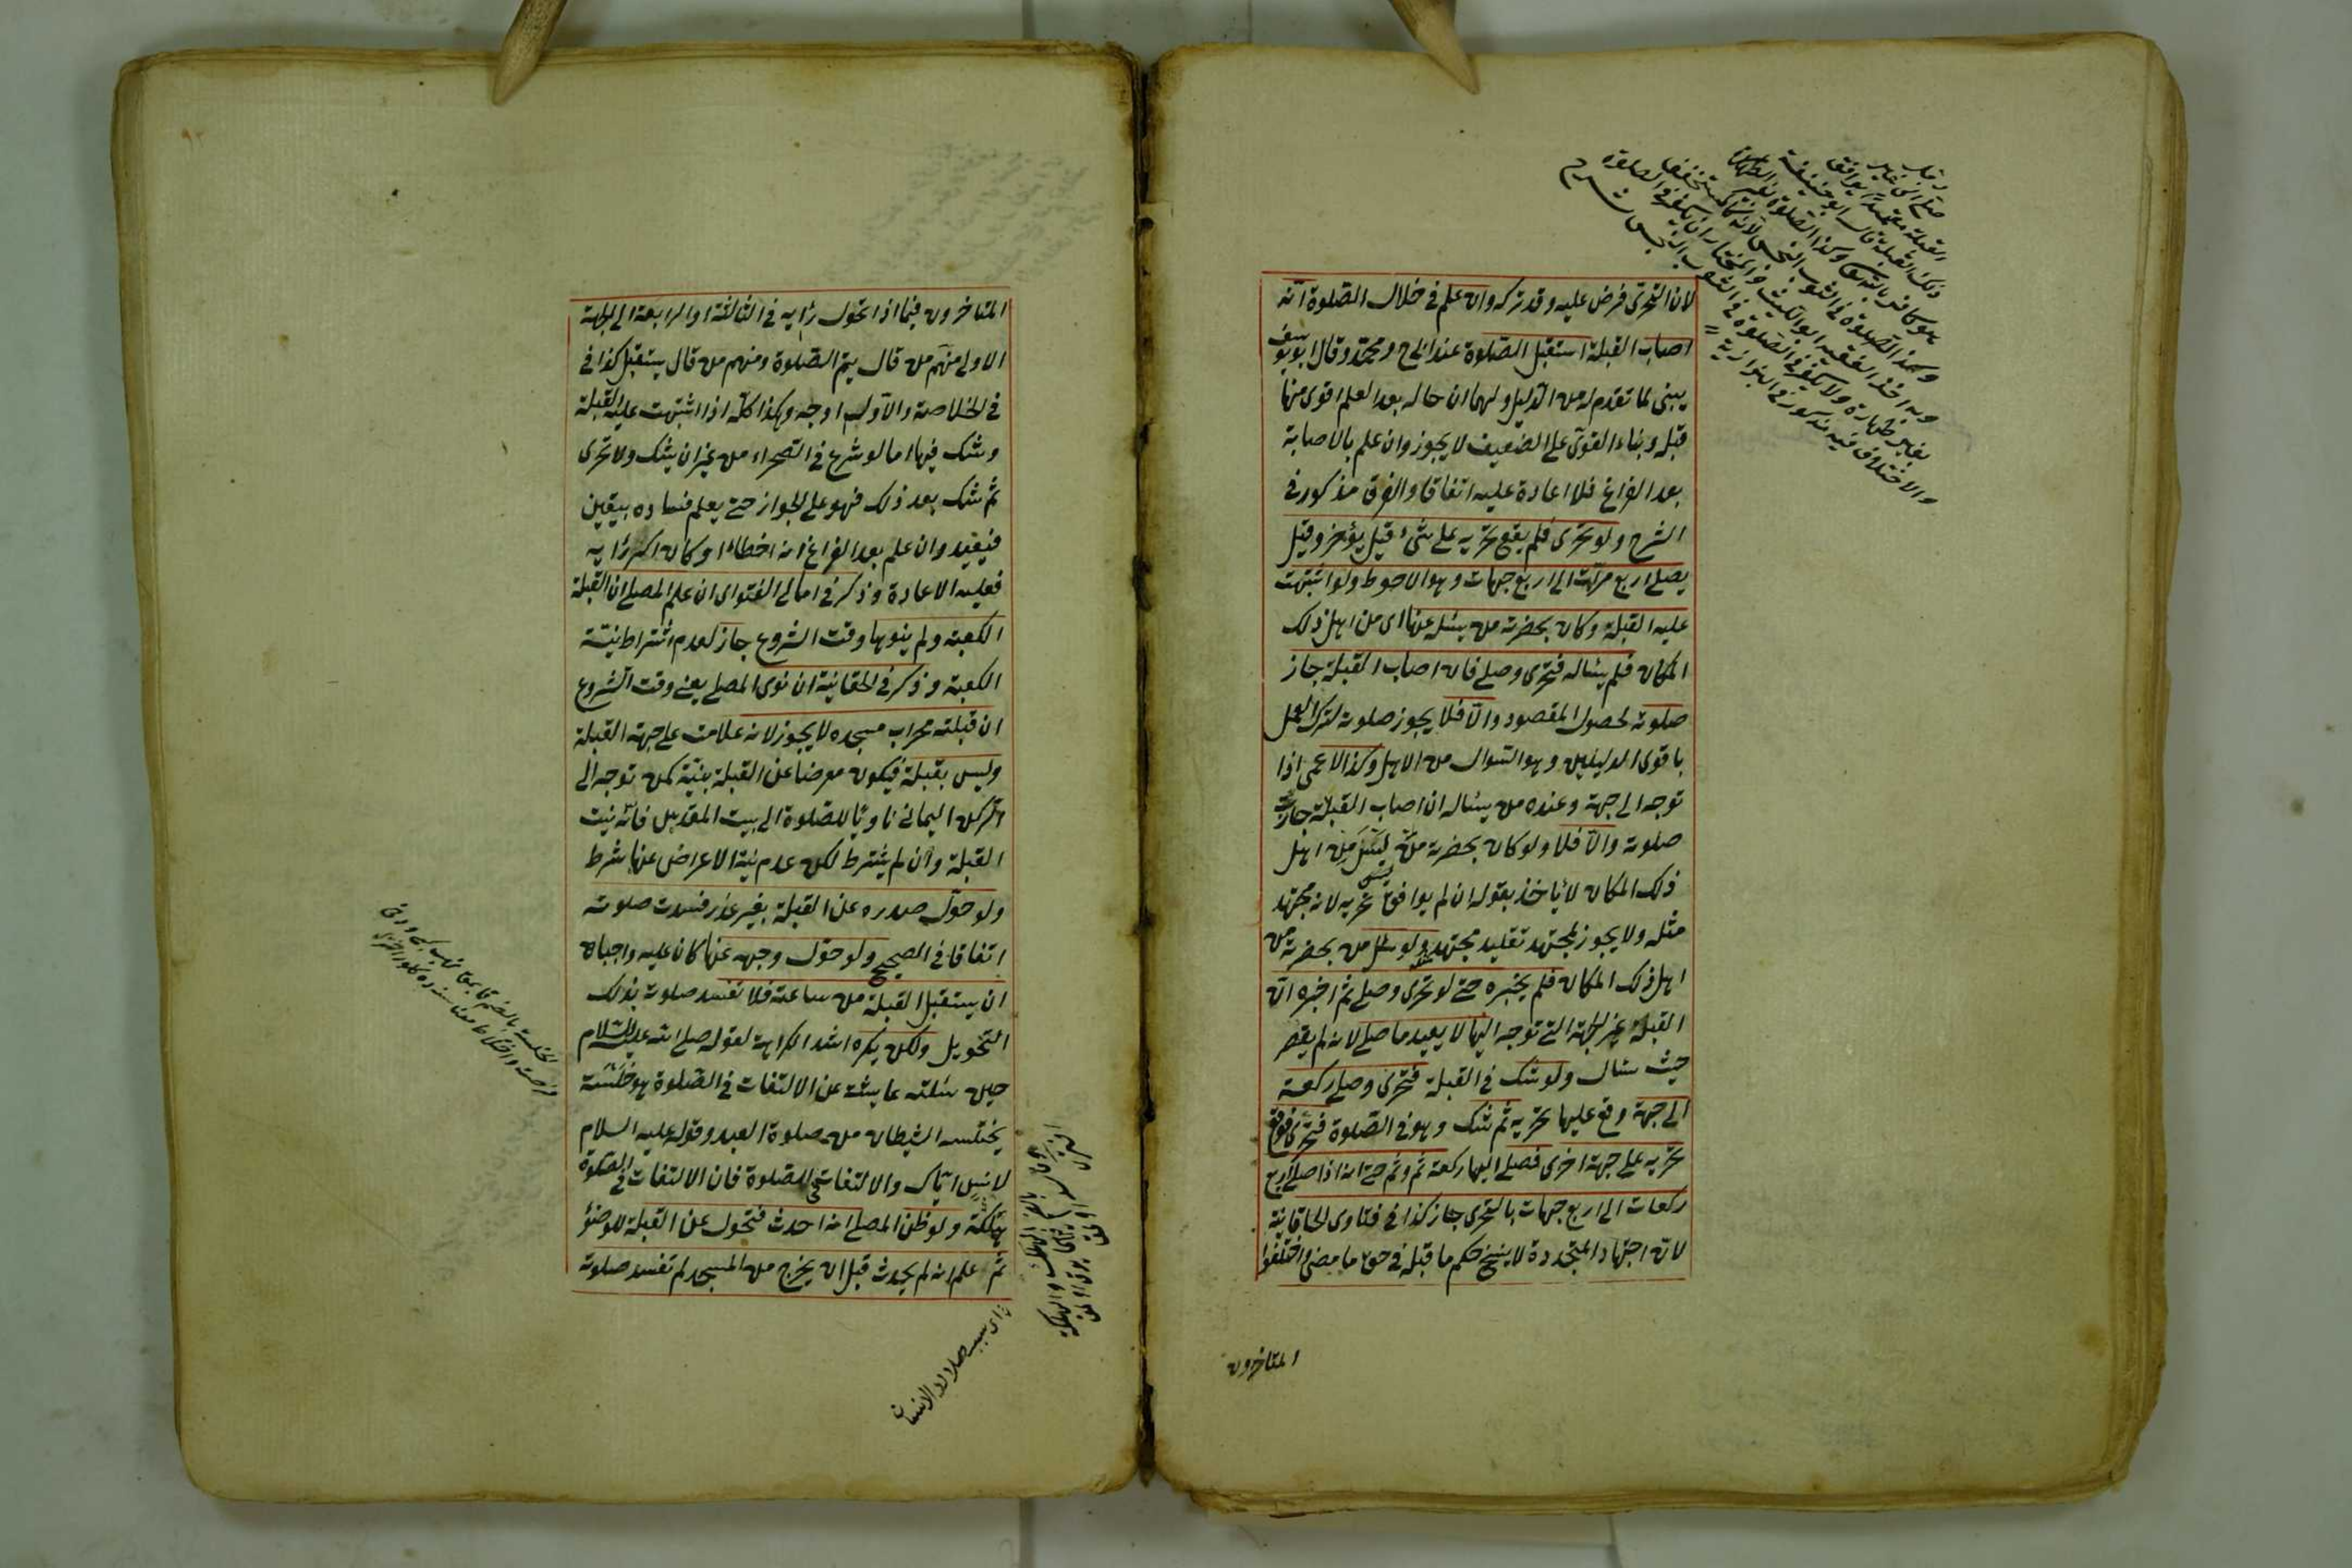 لان التحرى فرض عليه وقد تركه وان علم فى خلال الصلوة انه
اصاب القبلة استقبل الصلوة عند ابى ح ومحمد وقال ابو يوسف
يبنى لما تقدم له من الدليل ولهما ان حاله بعد العلم اقوى منها
قبله وبناء القوى على الضعيف لا يجوز وان علم بالاصابة
بعد الفراغ فلا اعادة عليه اتفاقا والفرق مذكور فى
الشرح ولو تحرى فلم يقع تحريه على شئ قيل يؤخر وقيل
يصلى اربع مرات الى اربع جهات وهو الاحوط ولو اشتبهت
عليه القبلة وكان بحضرته من يسئله عنها اى من اهل ذلك
المكان فلم يسئاله فتحرى وصلى فان اصاب القبلة جاز
صلوته لحصول المقصود والا فلا يجوز صلوته لترك العمل
باقوى الدليلين وهو السوال من الاهل وكذا الاعمى اذا
توجه الى جهة وعنده من يسئاله ان اصاب القبلة جازت
صلوته والا فلا ولو كان بحضرته من ليس من اهل
ذلك المكان لا ياخذ بقوله ان لم يوافق تحريه لانه مجتهد
مثله ولا يجوز لمجتهد تقليد مجتهد ولو سئل من بحضرته من
اهل ذلك المكان فلم يخبره حتى لو تحرى وصلى ثم اخبره ان
القبلة غير الجهة التى توجه اليها لا يعيد ما صلى لانه لم يقصر
حيث سئال ولو شك فى القبلة فتحرى وصلى ركعة
الى جهة وقع عليها تحريه ثم شك وهو فى الصلوة فتحرى فوقع
تحريه على جهة اخرى فصلى اليها ركعة ثم وثم حتى انه اذا صلى اربع
ركعات الى اربع جهات بالتحرى جاز كذا فى فتاوى الخاقانية
لان اجتهاد المتجددة لا ينسخ حكم ما قبله فى حق ما مضى واختلفوا
المتاخرون
المتاخرون فيما اذا تحول رايه فى الثالثة او الرابعة الى الجهة
الاولى منهم من قال يتم الصلوة ومنهم من قال يستقبل كذا فى
فى الخلاصة والاول اوجه وهكذا كله اذا اشتبهت عليه القبلة
وشك فيها اما لو شرع فى الصحراء من غير ان يشك ولا تحرى
ثم شك بعد ذلك فهو على الجواز حتى يعلم فساده بيقين
فيعيد وان علم بعد الفراغ انه اخطاء او كان اكبر رايه
فعليه الاعادة وذكر فى امالى الفتواى ان علم المصلى ان القبلة
الكعبة ولم ينوها وقت الشروع جاز لعدم اشتراط نية
الكعبة وذكر فى الخقانية ان نوى المصلى يعنى وقت الشروع
ان قبلته محراب مسجده لا يجوز لانه علامت على جهة القبلة
وليس بقبلة فيكون معرضا عن القبلة بنية كمن توجه الى
الركن اليمانى ناويا للصلوة الى بيت المقدس فانه نيت
القبلة وان لم يشترط لكن عدم نية الاعراض عنها شرط
ولو حول صدره عن القبلة بغير عذر فسدت صلوته
اتفاقا فى الصحيح ولو حول وجهه عنها كان عليه واجباه
ان يستقبل القبلة من ساعته فلا تفسد صلوته بذلك
التحويل ولكن يكره اشد الكراهة لقوله صلى الله عليه السلام
حين سئلته عايشة عن الالتفات فى الصلوة هو خلسة
يختلسه الشيطان من صلوة العبد وقوله عليه السلام
لانس اياك والالتفات فى الصلوة فان الالتفات فى الصلوة
هلكة ولو ظن المصلى انه احدث فتحول عن القبلة للوضؤ
ثم علم انه لم يحدث قبل ان يخرج من المسجد لم تفسد صلوته